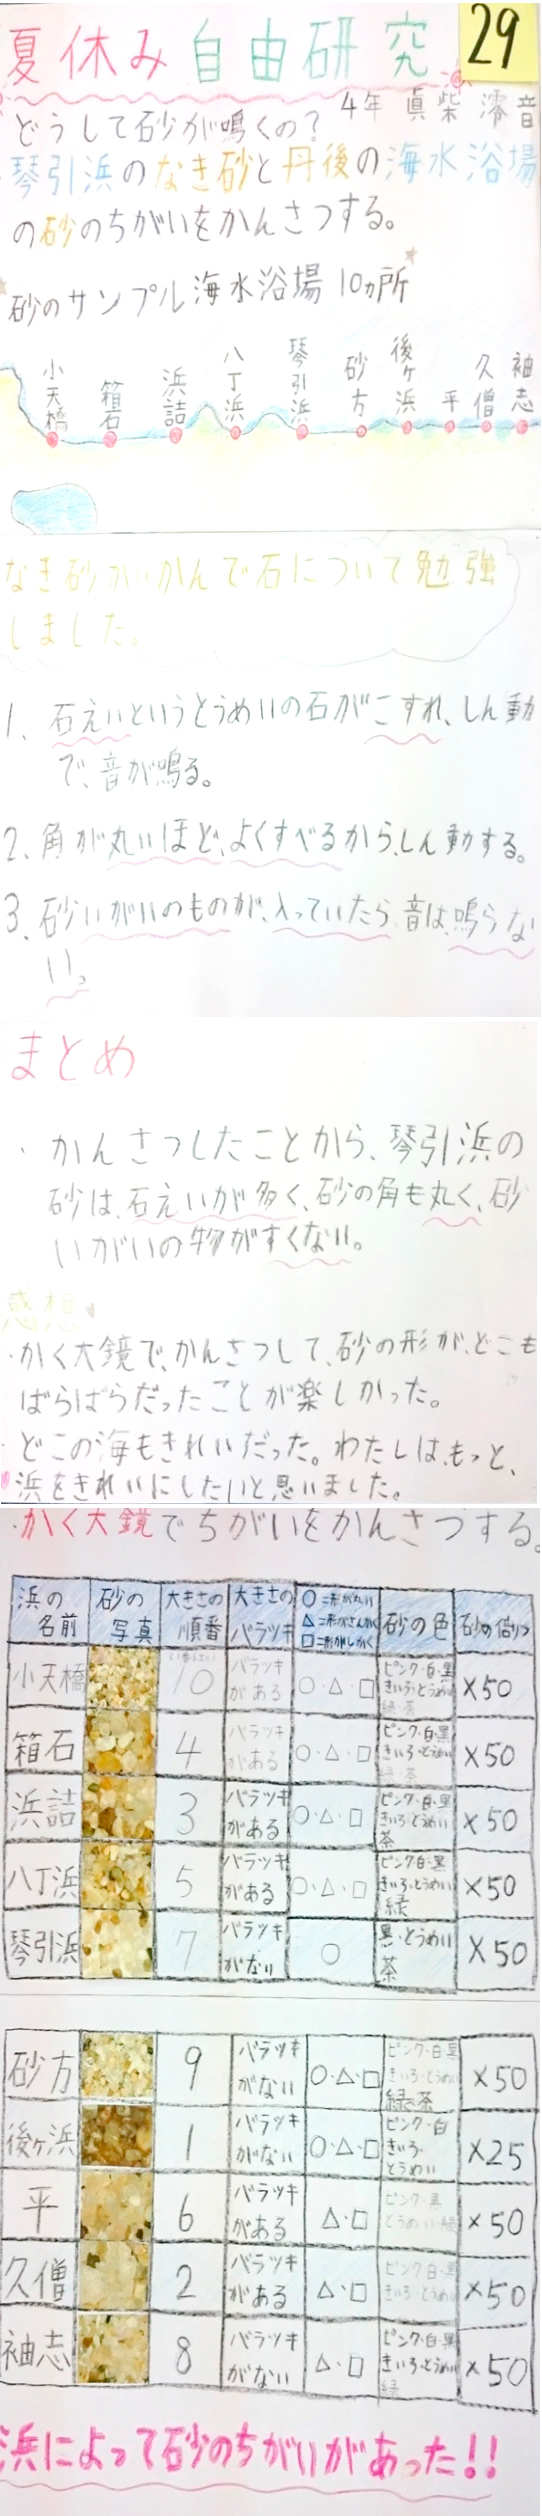 夏休み自由研究
29
4年 眞柴 澪音
どうして砂が鳴くの?
琴引浜のなき砂と丹後の海水浴場
の砂のちがいをかんさつする。
砂のサンプル海水浴場10カ所
小天橋 箱石 浜詰 八丁浜 琴引浜 砂方 後ヶ浜 平 久僧 袖志
なき砂かいかんで石について勉強
しました。
1、石えいというとうめいの石がこすれ、しん動
で、音が鳴る。
2、角が丸いほど、よくすべるから、しん動する。
3、砂いがいのものが、入っていたら、音は、鳴らな
い。
まとめ
・かんさつしたことから、琴引浜の
砂は、石えいが多く、砂の角も丸く、砂
いがいの物がすくない。
感想
・かく大鏡で、かんさつして、砂の形が、どこも
ばらばらだったことが楽しかった。
・どこの海もきれいだった。わたしは、もっと、
浜をきれいにしたいと思いました。
・かく大鏡でちがいをかんさつする。
浜の名前 砂の写真 大きさの順番 大きさのバラツキ ○=形が丸い △=形がさんかく □=形がしかく 砂の色 砂の倍りつ
小天橋 10 バラツキがある ○・△・□ ピンク・白・黒 きいろ・とうめい 緑・茶 ×50
箱石 4 バラツキがある ○・△・□ ピンク・白・黒 きいろ・とうめい 緑・茶 ×50
浜詰 3 バラツキがある ○・△・□ ピンク・白・黒 きいろ・とうめい 茶 ×50
八丁浜 5 バラツキがある ○・△・□ ピンク・白・黒 きいろ・とうめい 緑 ×50
琴引浜 7 バラツキがない ○ 黒・とうめい 茶 ×50
砂方 9 バラツキがない ○・△・□ ピンク・白・黒 きいろ・とうめい 緑・茶 ×50
後ヶ浜 1 バラツキがない ○・△・□ ピンク・白 きいろ・とうめい ×25
平 6 バラツキがある △・□ ピンク・黒 とうめい・緑 ×50
久僧 2 バラツキがある △・□ ピンク・白・黒 きいろ・とうめい ×50
袖志 8 バラツキがない △・□ ピンク・白・黒 きいろ・とうめい 緑 ×50
浜によって砂のちがいがあった!!